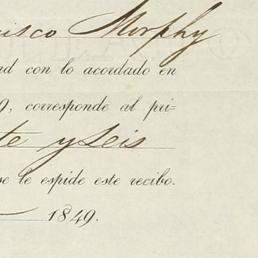 isco Morphy
ad con lo acordado en
9, corresponde al pri-
te y Seis
se le espide este recibo.
1849.